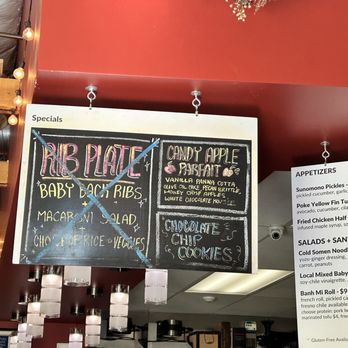 Specials
RIB PLATE
BABY BACK RIBS
MACARONI SALAD,
+
CHOICE OF RICE OR VEGGIES
CANDY APPLE
PARFAIT
VANILLA PANNA COTTA
OLIVE OIL CAKE PECAN BRITTLE
HONEY CRISP APPLES
WHITE CHOCOLATE
CHOCOLATE
CHIP
COOKIES
APPETIZERS
Sunomono Pickles -
pickled cucumber,
Poke Yellow Fin
avocado, cucumber,
Fried Chicken Half
infused maple syrup,
SALADS +
Cold Somen
yuzu-ginger dressing,
carrot, peanuts
Local Mixed Baby
soy-chile vinaigrette
Banh Mi Roll - $9
french roll, pickled
fresno chile available
choose protein:
marinated tofu $4,
* Gluten Free